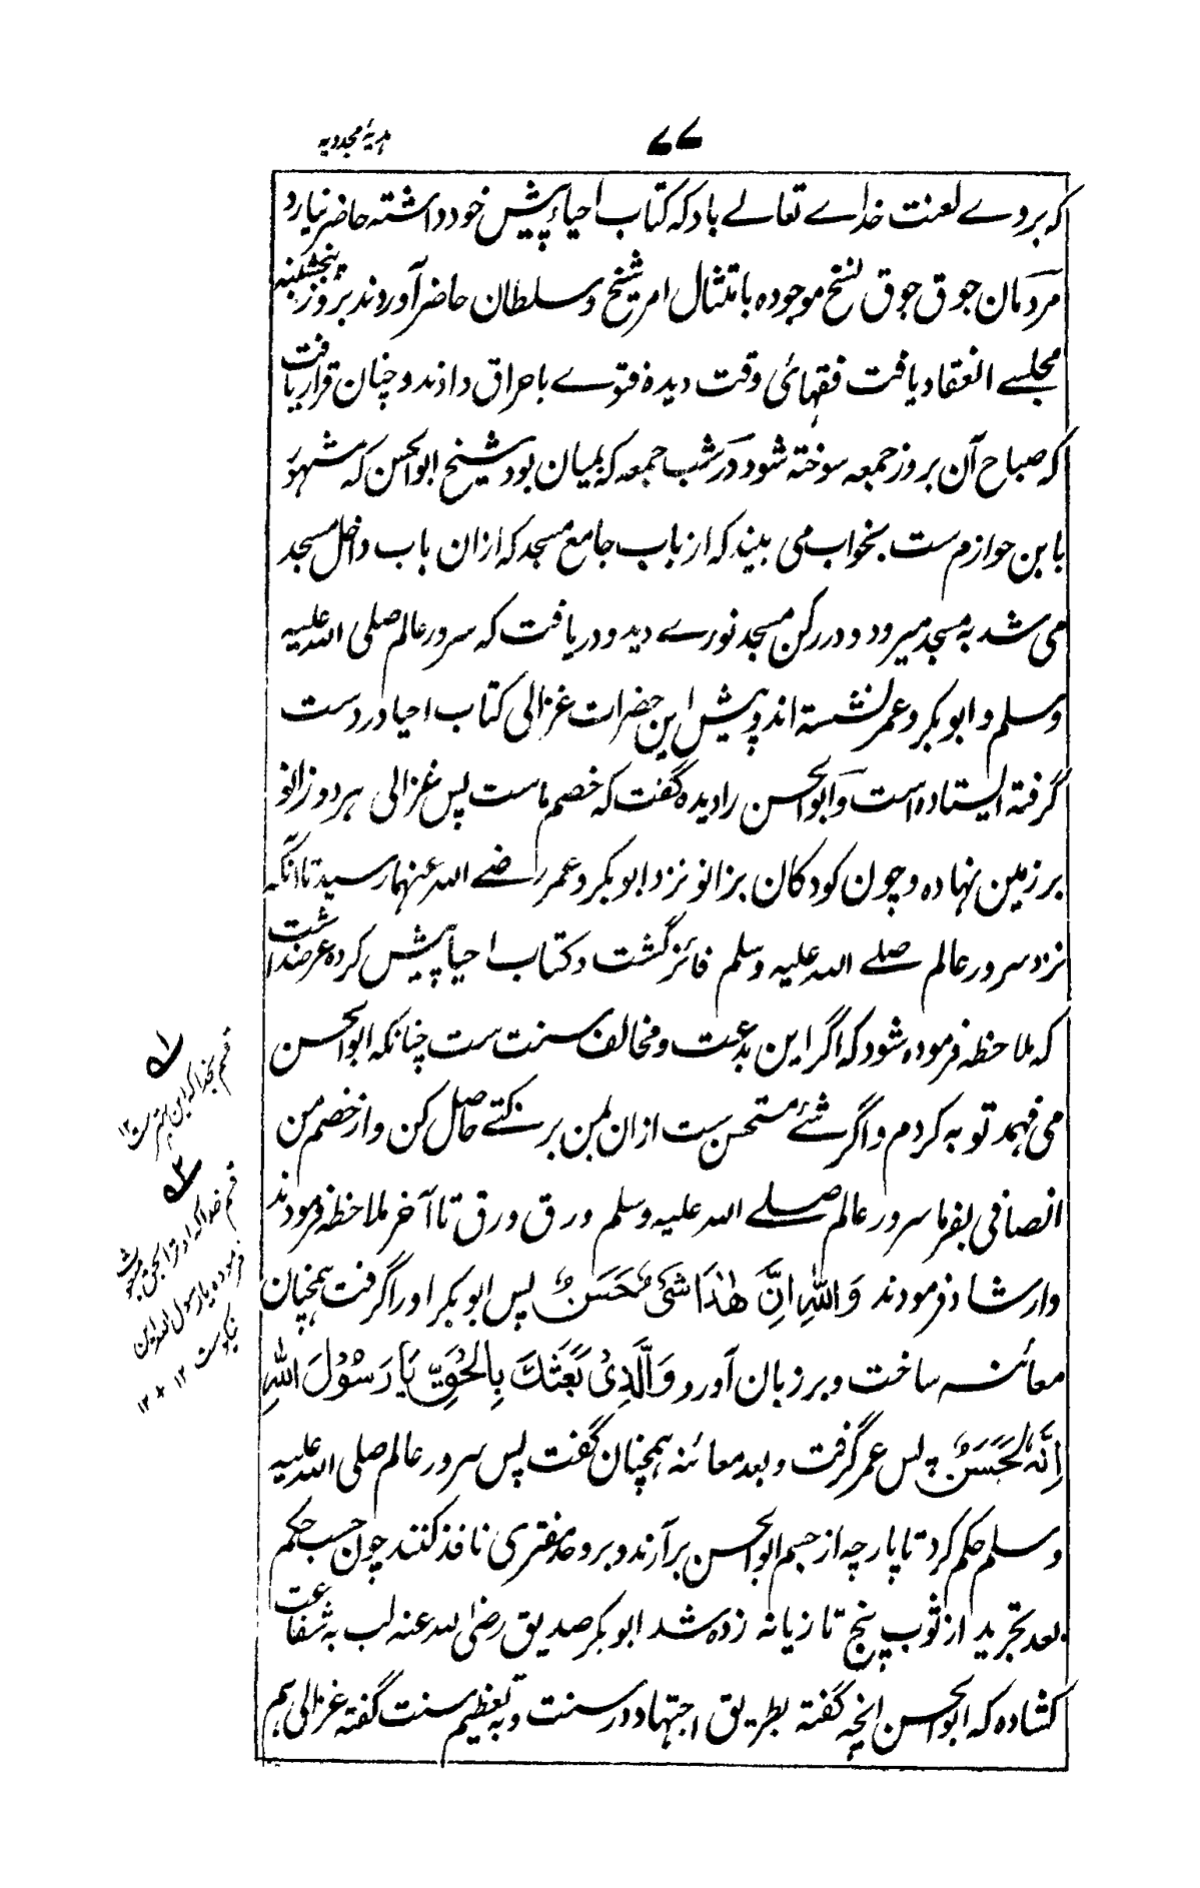 ۷۷
ہدیۂ مجددیہ
کہ بروے لعنت خداے تعالے باد کہ کتاب احیاء پیش خود داشتہ حاضر نیارد
مردمان جوق جوق نسخ موجودہ بامتثال امر شیخ و سلطان حاضر آوردند بروز پنجشنبہ
مجلسے انعقاد یافت فقہائ وقت دیدہ فتوے باحراق دادند و چنان قرار یافت
کہ صباح آن بروز جمعہ سوختہ شود در شب جمعہ کہ بمیان بود شیخ ابوالحسن کہ مشہور
بابن حوازم ست بخواب می بیند کہ از باب جامع مسجد کہ ازان باب داخل مسجد
می شد بہ مسجد میرود و در رکن مسجد نورے دید و دریافت کہ سرور عالم صلی اللہ علیہ
وسلم و ابو بکر و عمر نشستہ اند و پیش این حضرات غزالی کتاب احیا در دست
گرفتہ ایستادہ است و ابوالحسن را دیدہ گفت کہ خصم ماست پس غزالی ہر دو زانو
بر زمین نہادہ و چون کودکان بزانو نزد ابو بکر و عمر رضے اللہ عنہما رسید تا آنکہ
نزد سرور عالم صلے اللہ علیہ وسلم فائز گشت و کتاب احیا پیش کردہ عرضداشت
کہ ملاحظہ فرمودہ شود کہ اگر این بدعت و مخالف سنت ست چنانکہ ابوالحسن
می فہمد توبہ کردم و اگر شئے مستحسن ست ازان بمن برکتے حاصل کن و از خصم من
انصافی بفرما سرور عالم صلے اللہ علیہ وسلم ورق ورق تا آخر ملاحظہ فرمودند
و ارشاد فرمودند وَاللّٰہِ اِنَّ ھٰذَا شَیْءٌ حَسَنٌ پس ابو بکر او را گرفت ہمچنان
معائنہ ساخت و بر زبان آورد وَالَّذِیْ بَعَثَكَ بِالْحَقِّ یَا رَسُوْلَ اللّٰہِ
اِنَّہٗ لَحَسَنٌ پس عمر گرفت و بعد معائنہ ہمچنان گفت پس سرور عالم صلی اللہ علیہ
وسلم حکم کرد تا پارچہ از جسم ابوالحسن برآرند و برو حد مفتری نافذ کنند چون حسب حکم
بعد تجرید از ثوب پنج تازیانہ زدہ شد ابو بکر صدیق رضی اللہ عنہ لب بہ شفاعت
کشادہ کہ ابوالحسن انچہ گفتہ بطریق اجتہاد در سنت و بہ تعظیم سنت گفتہ غزالی ہم
۱
قسم بخدا کہ این بہتر ست ۱۲
۲
قسم خدا کہ او ترا بحق مبعوث
فرمودہ یا رسول اللہ این
نیکوست ۱۲ + ۱۲